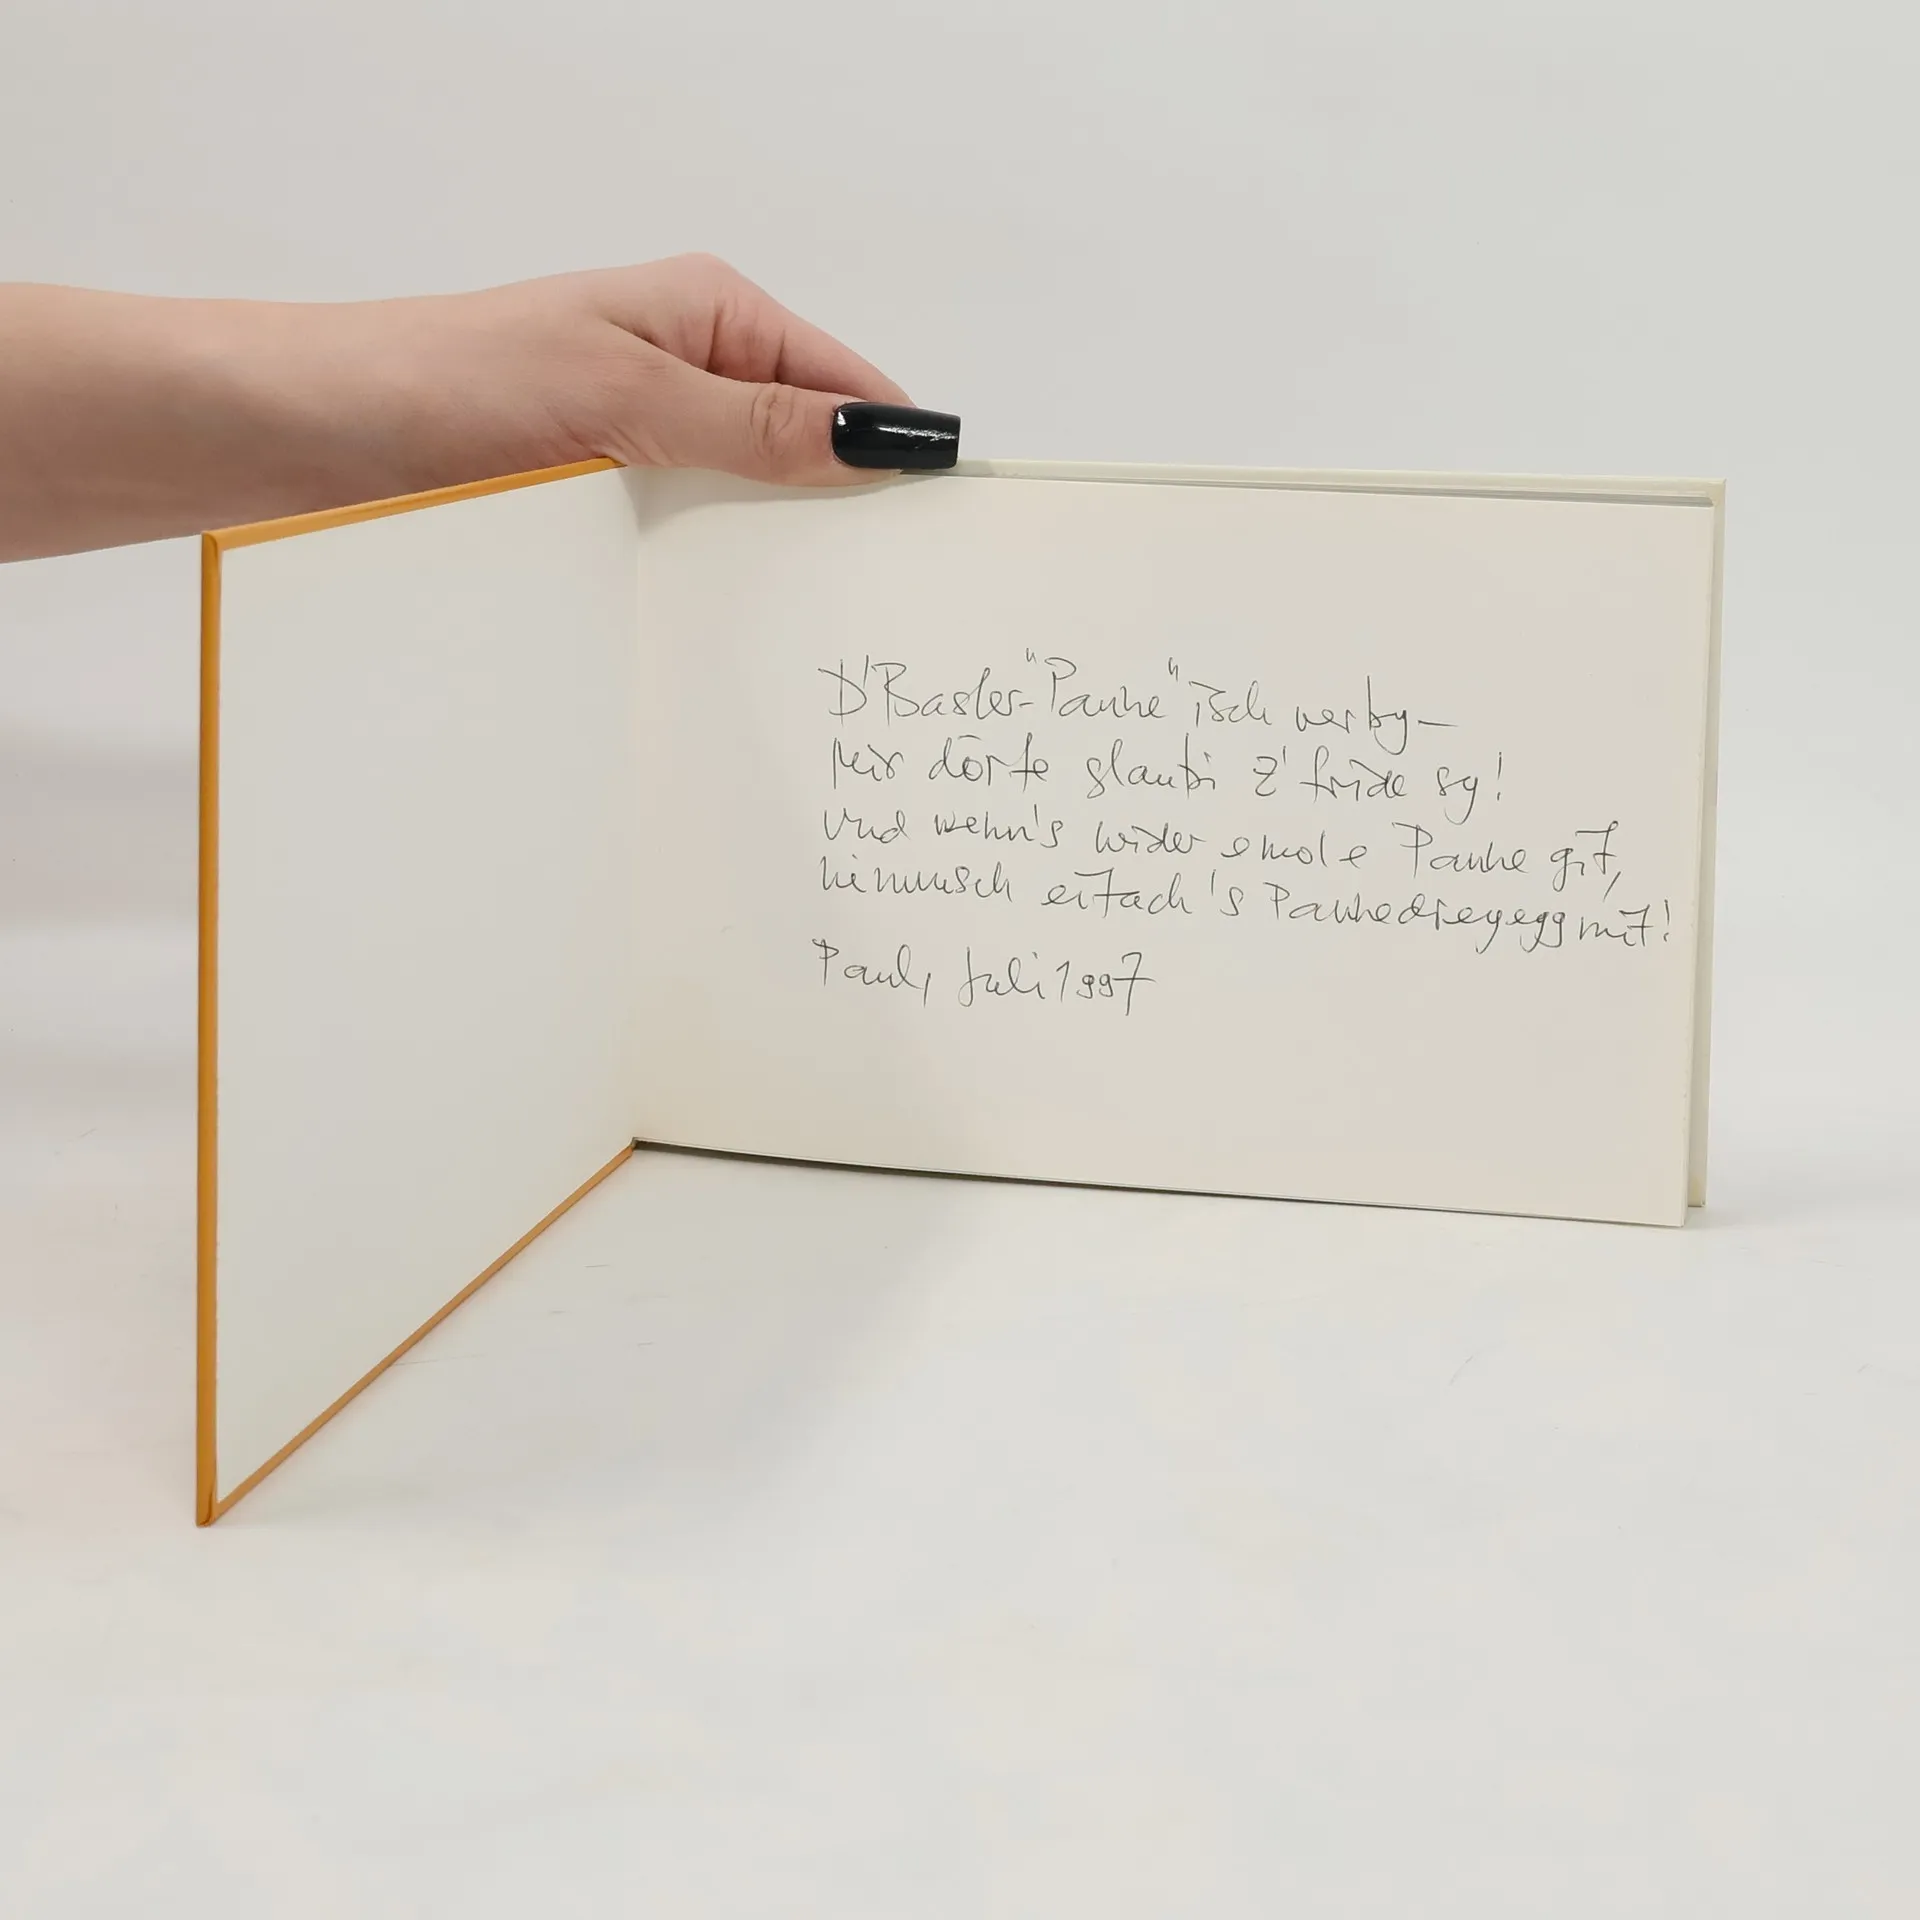 D'Basler-"Panne" isch verby—
Mir dörfe glaubi z'fride sy!
Und wenn's wider emole Panne git,
nimmsch eifach's Pannedreyegg mit!
Paul, Juli 1997